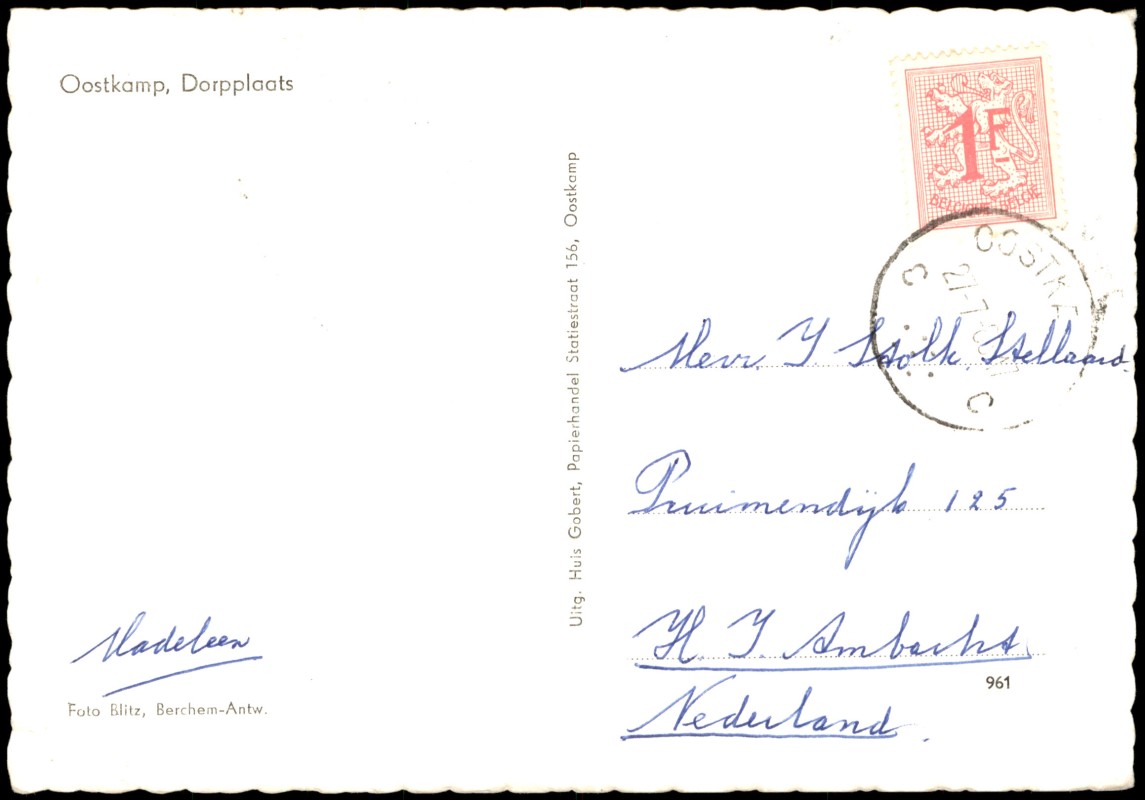 Oostkamp, Dorpplaats
1F
BELGIQUE-BELGIË
OOSTKA
C
27-7-
C
Uitg. Huis Gobert, Papierhandel Statiestraat 156, Oostkamp
Mevr. J. Stolk.
Pruimendijk 125
H. J. Ambacht
Nederland.
961
Madeleen
Foto Blitz, Berchem-Antw.